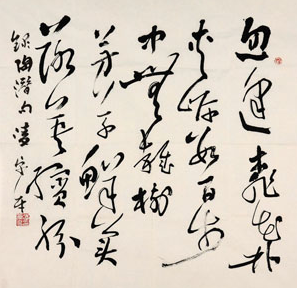 忽逢桃花林
夹岸数百步
中无杂树
芳草鲜美
落英缤纷
录陶潜句